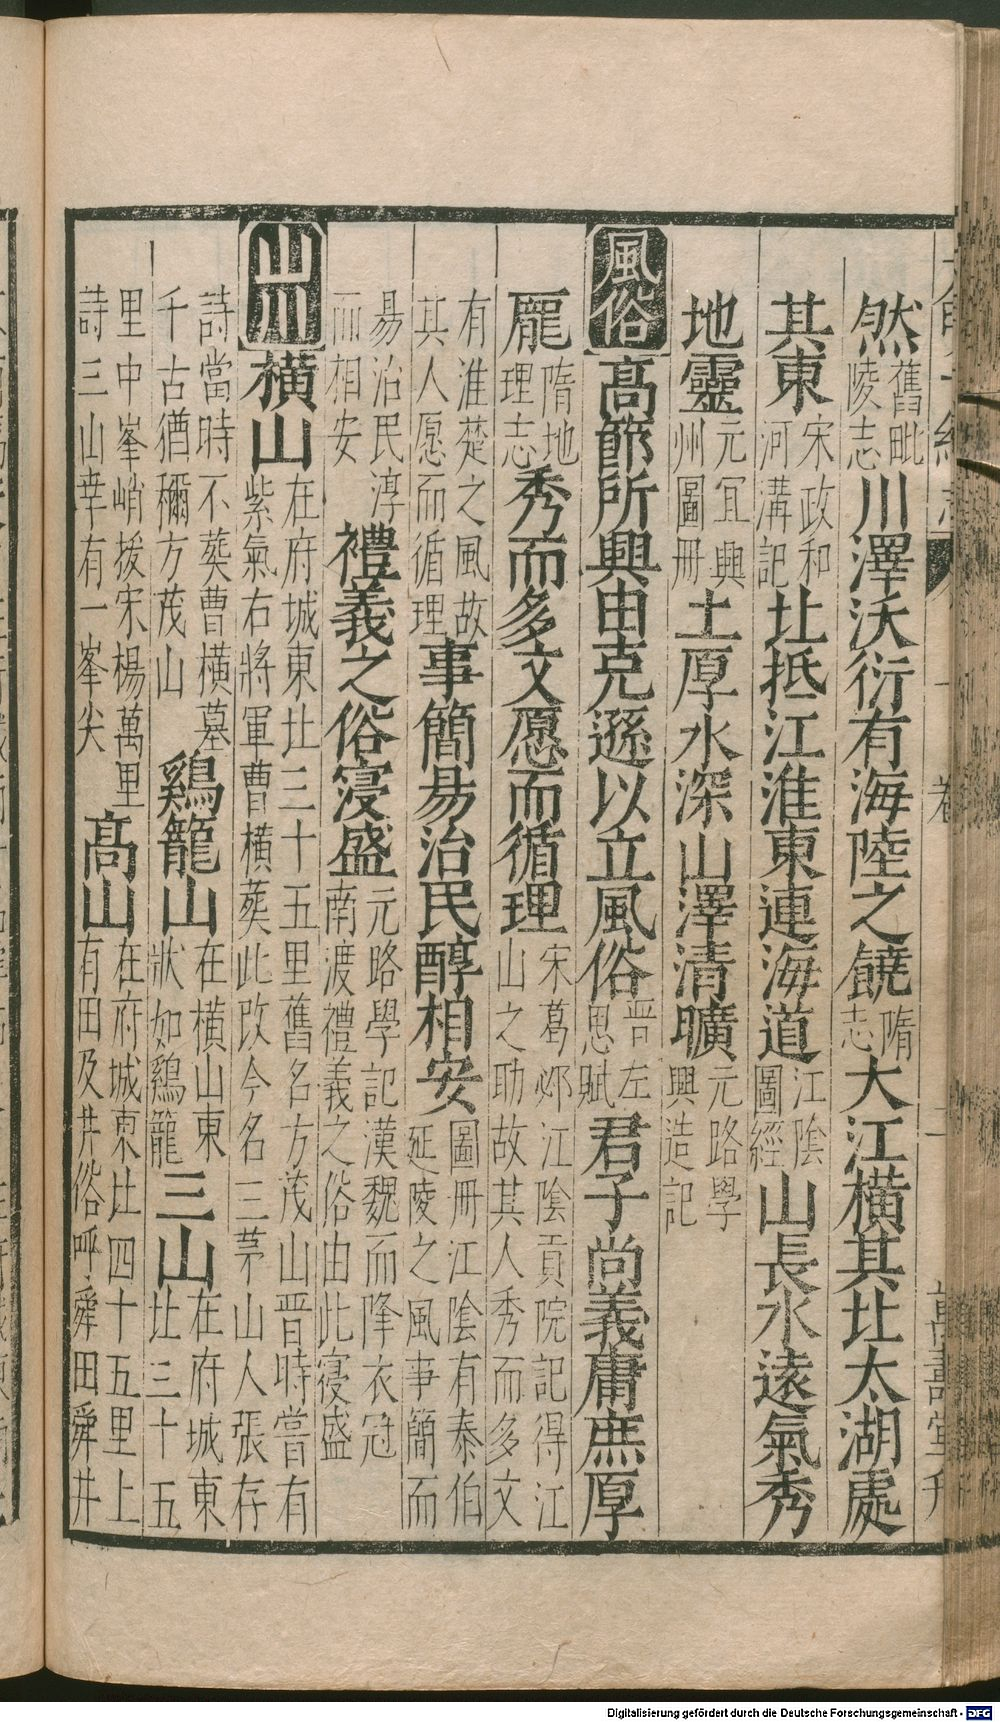 然舊毗陵志川澤沃衍有海陸之饒隋志大江橫其北太湖處
其東宋政和河溝記北抵江淮東連海道江陰圖經山長水遠氣秀
地靈元宜興州圖冊土厚水深山澤清曠元路學興造記
風俗高節所興由克遜以立風俗晉左思賦君子尚義庸庶厚
龎隋地理志秀而多文愿而循理宋葛邲江陰貢院記得江山之助故其人秀而多文
有淮楚之風故其人愿而循理事簡易治民醇相安圖冊江陰有泰伯延陵之風事簡而
易治民淳而相安禮義之俗寖盛元路學記漢魏而降衣冠南渡禮義之俗由此寖盛
山川橫山在府城東北三十五里舊名方茂山晉時嘗有紫氣右將軍曹橫葬此改今名三茅山人張存
詩當時不葵曹橫墓千古猶稱方茂山鷄籠山在橫山東狀如鷄籠三山在府城東北三十五
里中峯峭拔宋楊萬里詩三山幸有一峯尖高山在府城東北四十五里上有田及井俗呼舜田舜井
萬壽堂刊